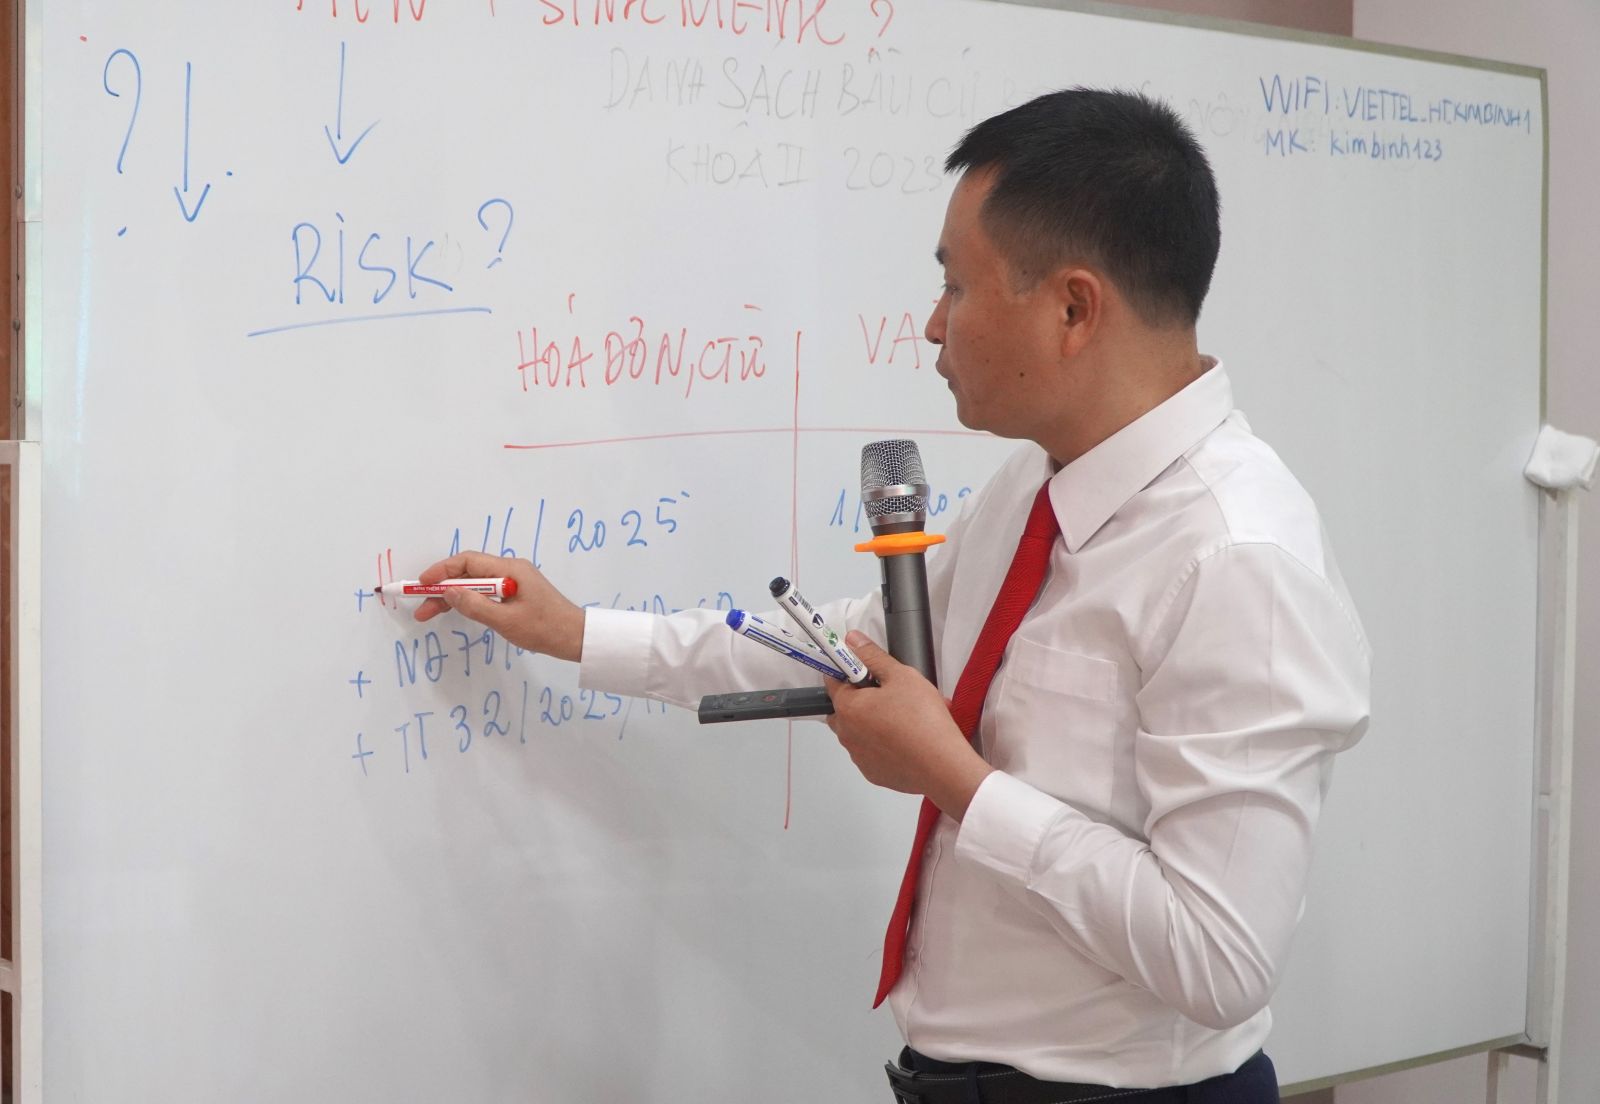 SINH MỆNH ?
?
DANH SÁCH BẦU CỬ
KHÓA II 2023
WIFI: VIETTEL_HT.KIMBINH1
MK: kimbinh123
RISK ?
HÓA ĐƠN, CTỪ
VA
1/6/2025
1/ 202
+
+ NĐ 70/
+ TT 32/2025/